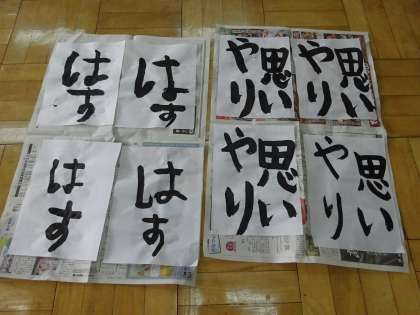 はす
はす
はす
はす
思い
やり
思い
やり
思い
やり
思い
やり